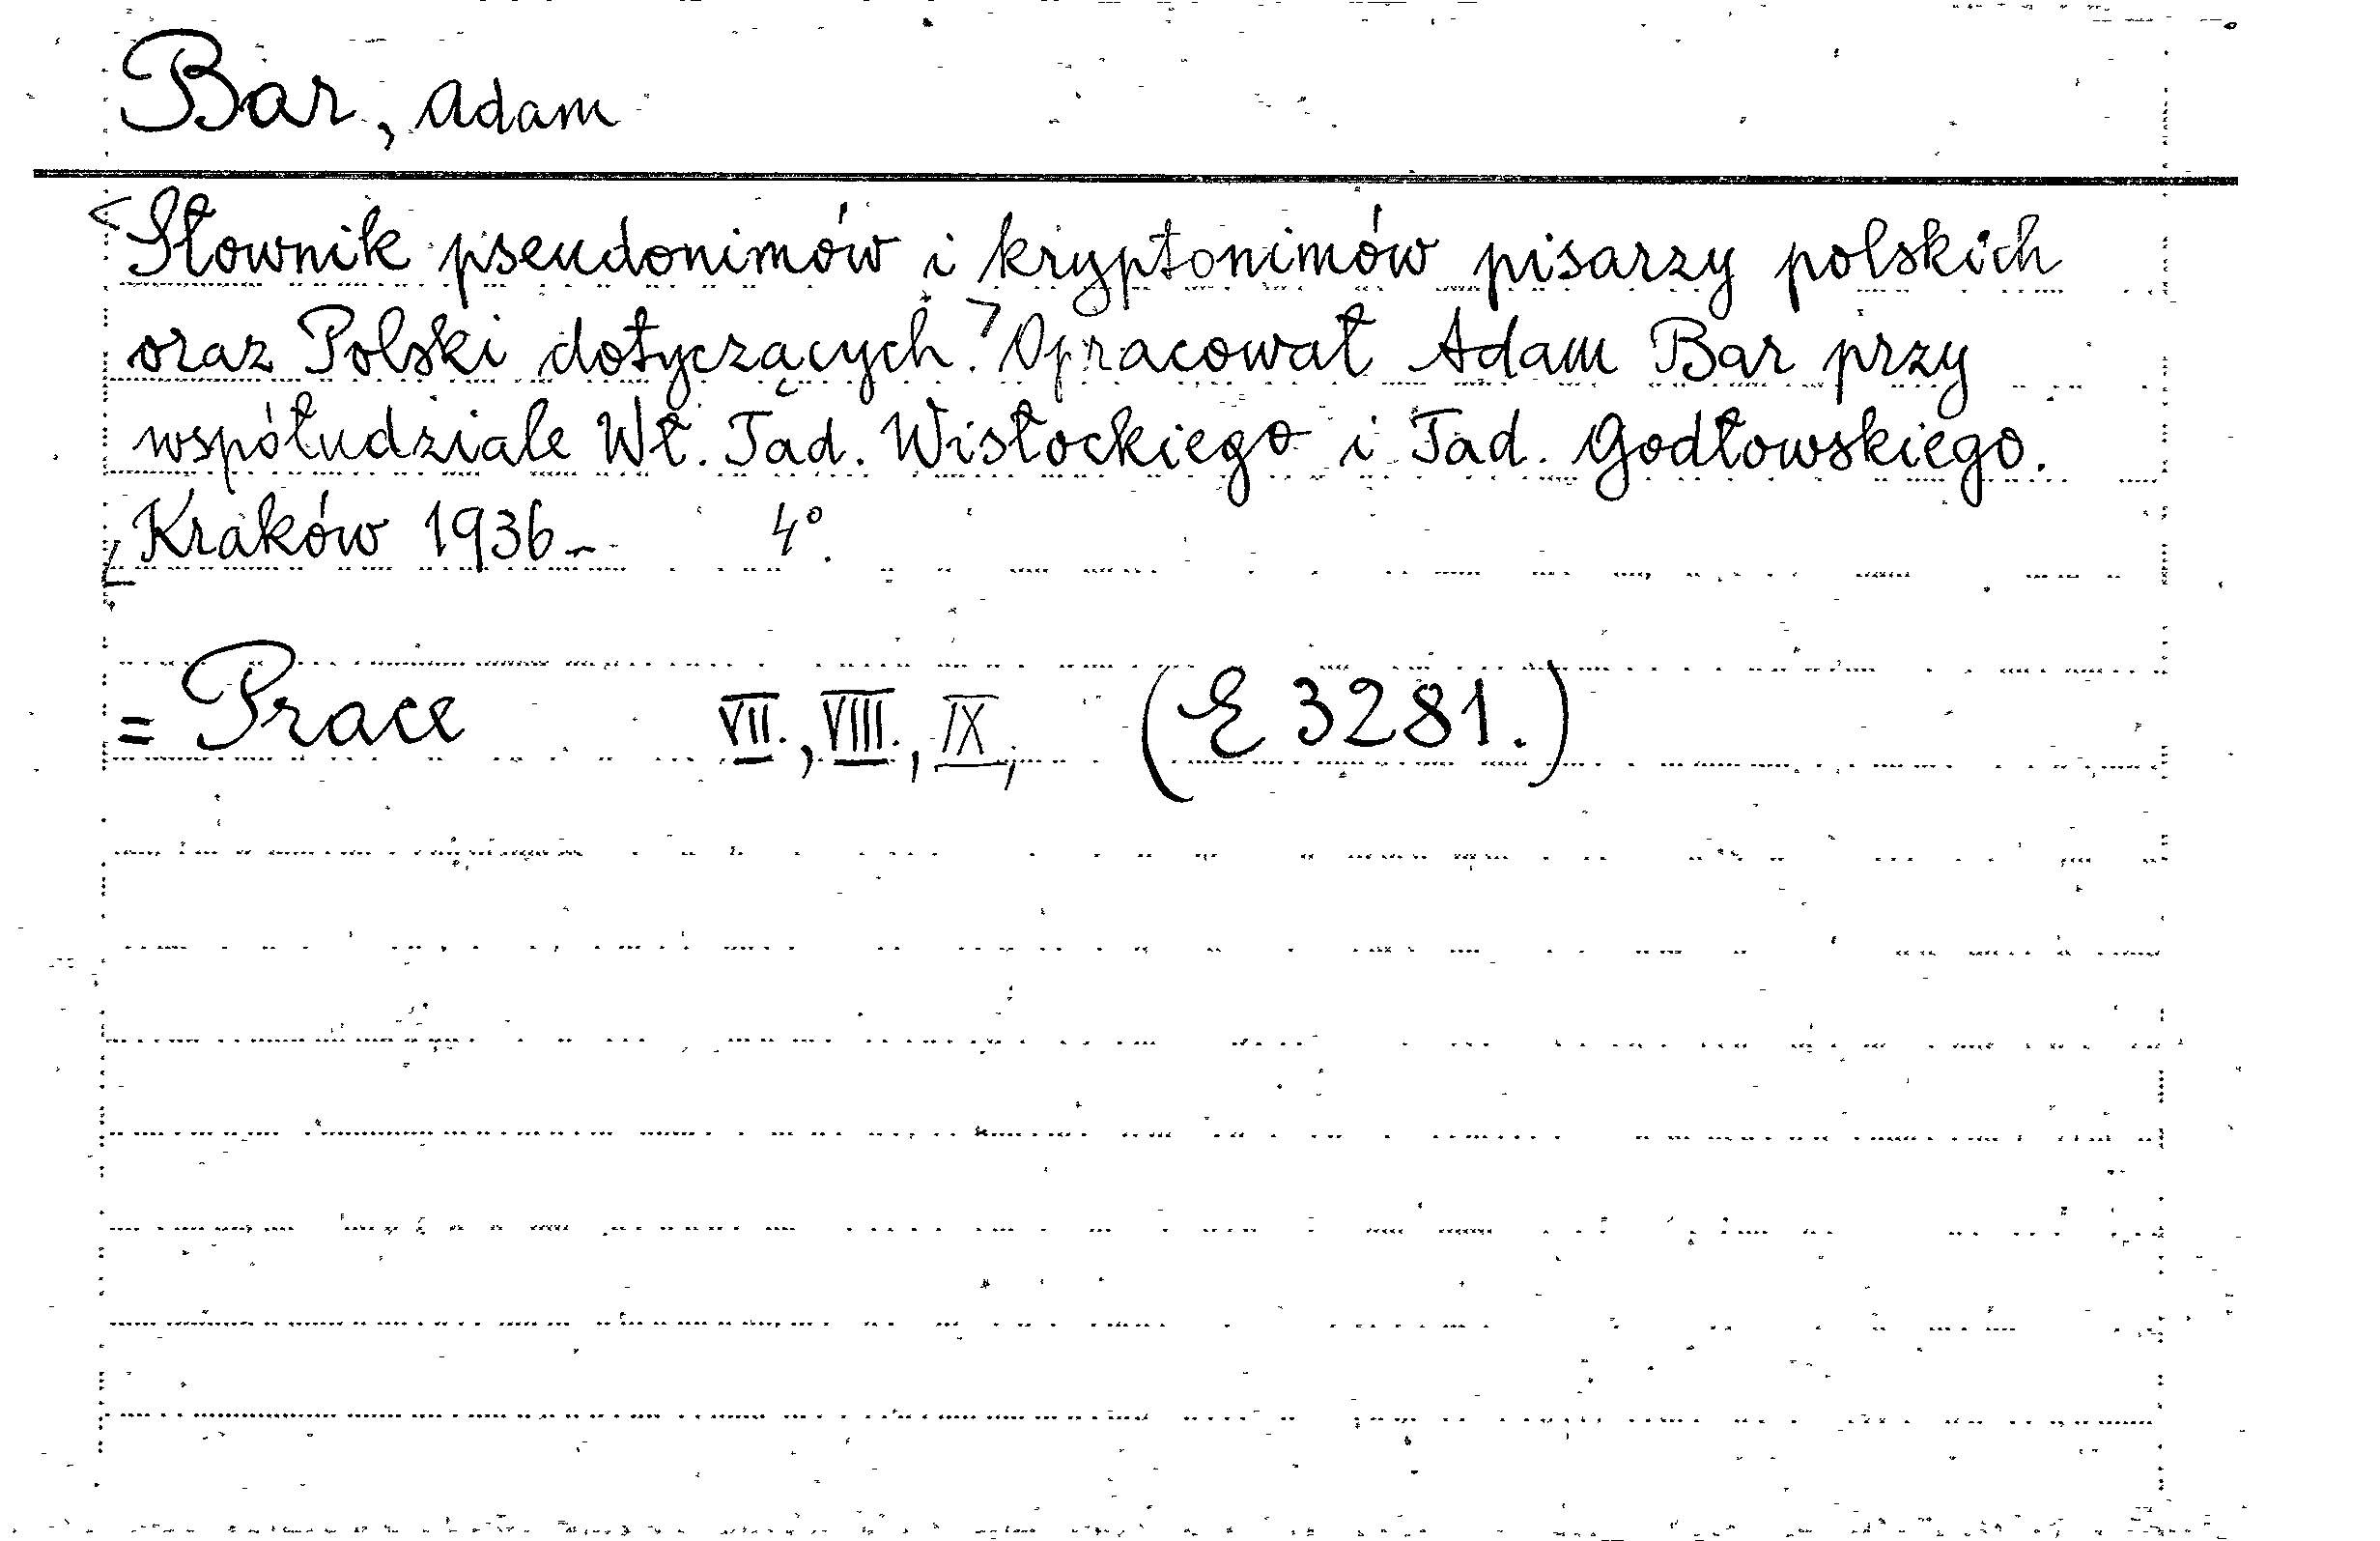 Bar, Adam
<Słownik pseudonimów i kryptonimów pisarzy polskich
oraz Polski dotyczących.> Opracował Adam Bar przy
współudziale Wł. Tad. Wisłockiego i Tad. Godłowskiego.
Kraków 1936- 4°.
= Prace VII., VIII., IX, (E 3281.)